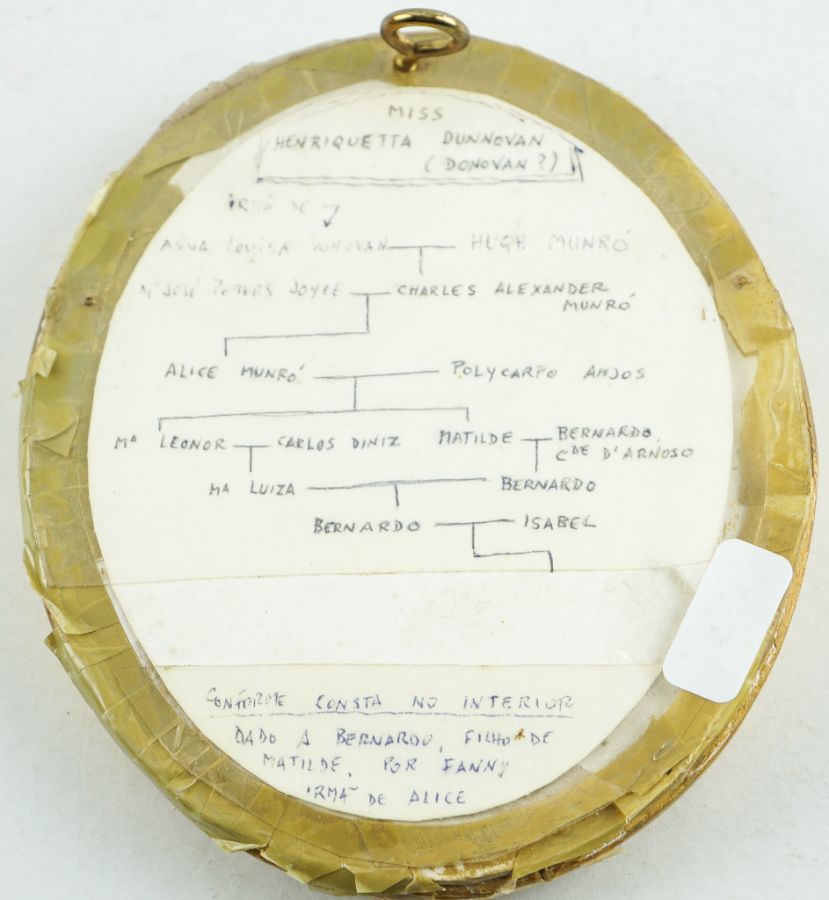 MISS
HENRIQUETTA DUNNOVAN
(DONOVAN ?)
IRMÃ DE
ANNA LOUISA DONOVAN HUGH MUNRÓ
Mª JOSÉ PETERS JOYCE CHARLES ALEXANDER
MUNRÓ
ALICE MUNRÓ POLYCARPO ANJOS
Mª LEONOR CARLOS DINIZ MATILDE BERNARDO,
CDE D'ARNOSO
Mª LUIZA BERNARDO
BERNARDO ISABEL
CONFORME CONSTA NO INTERIOR
DADO A BERNARDO, FILHO DE
MATILDE, POR FANNY
IRMÃ DE ALICE